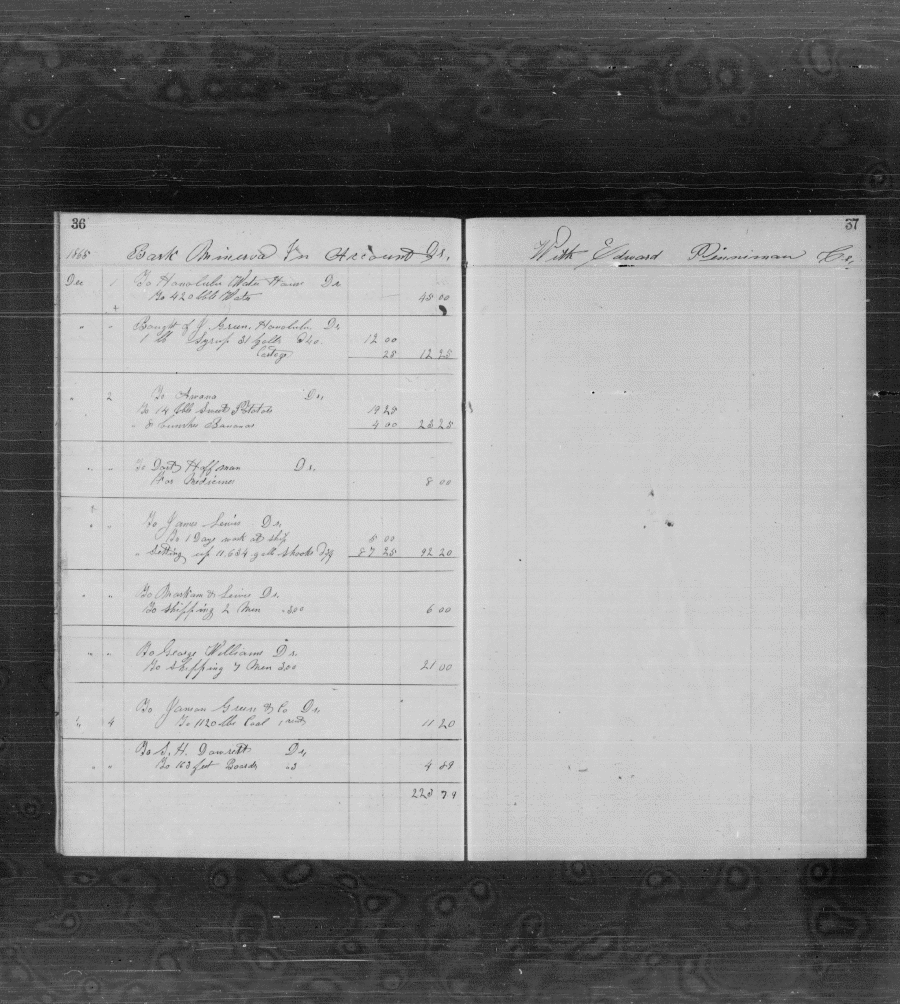 36
1865 Bark Minerva In Account Dr.
Dec 1 To Honolulu Water Works Dr
To 420 bbls Water 45 00
" " Bought of J Green, Honolulu. Dr
1 Syrup 31 Galls 12 00
Cartage 25 12 25
" 2 To Awana Dr.
To 14 bbls Sweet Potatoes 19 25
" 8 bunches Bananas 4 00 23 25
" " To Doct Hoffman Dr.
For Medicines 8 00
" " To James Lewis Dr.
To 1 Days work at ship 5 00
" Setting up 11,634 galls shooks 87 25 92 20
" " To Markam & Lewis Dr.
To shipping 2 Men 300 6 00
" " To George Williams Dr.
To shipping 7 Men 300 21 00
" 4 To Green & Co Dr.
To 1120 lbs Coal 11 20
To S. H. Dowsett Dr.
" " To 163 feet Boards 3 4 89
223 79
37
With Edward Penniman Cr.